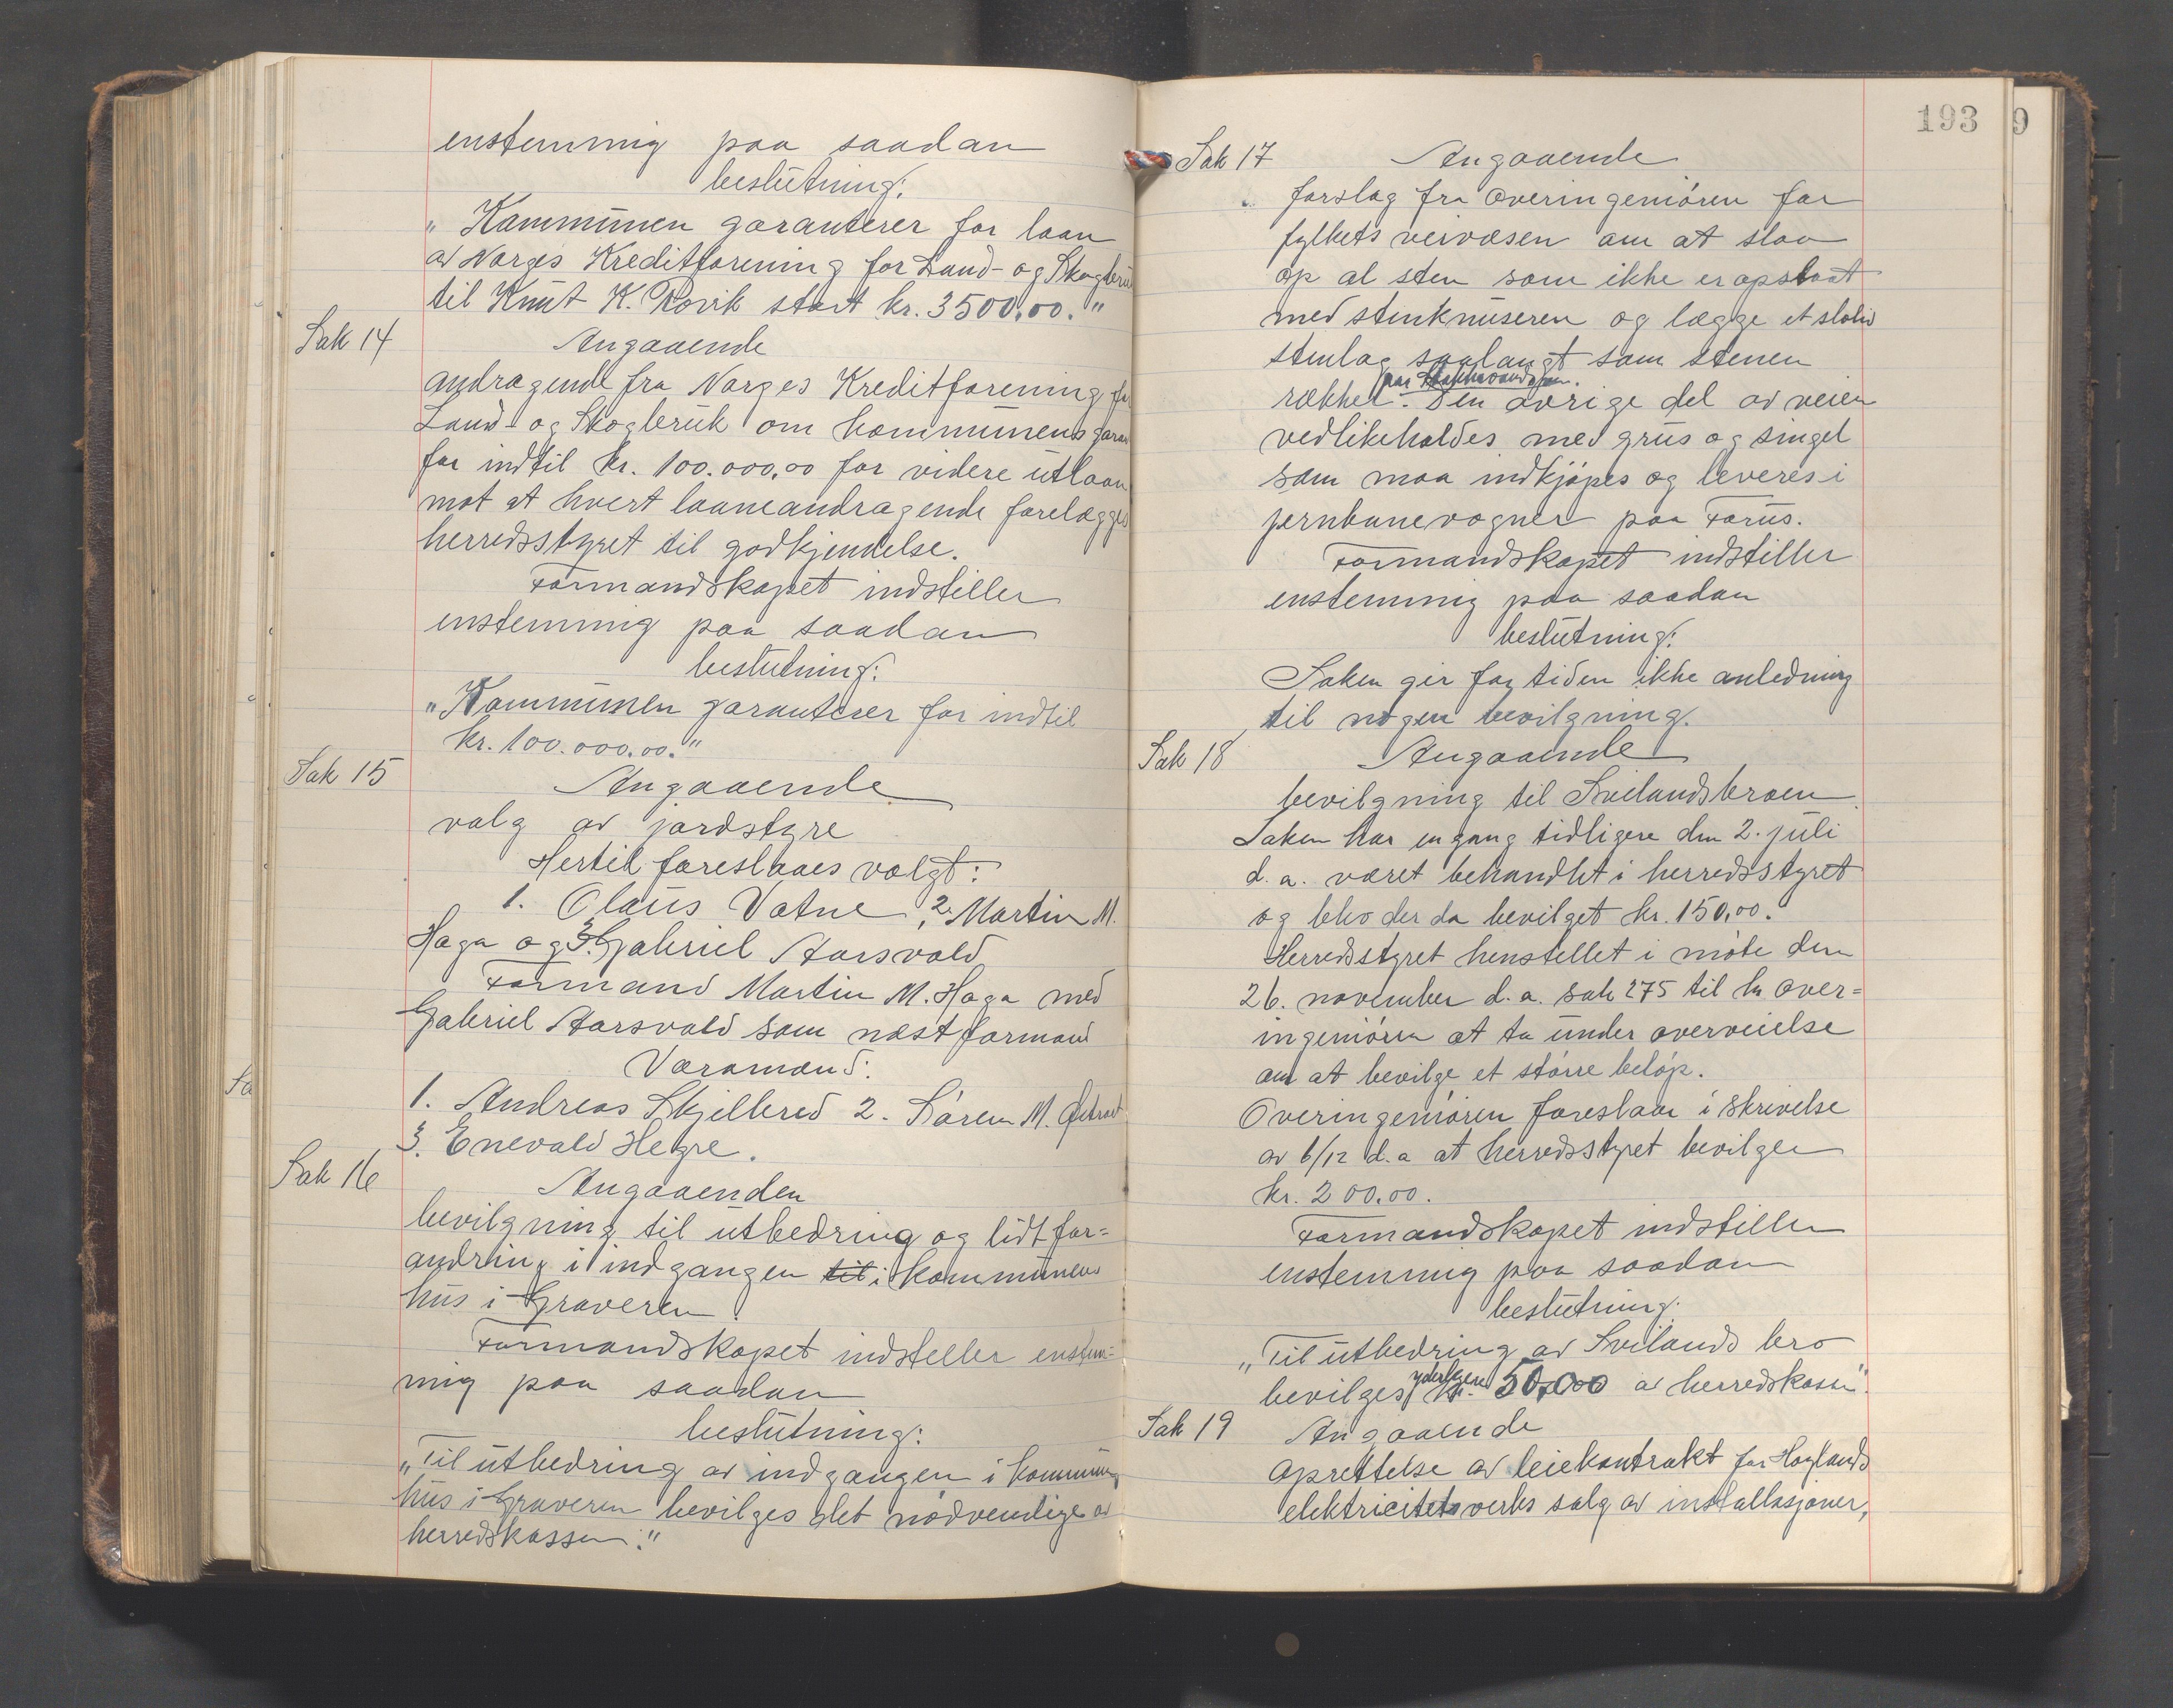 enstemmig paa saadan
beslutning:
"Kommunen garanterer for laan
av Norges Kreditforening for Land- og Skogbruk
til Knut K. Rovik stort kr. 3500,00."
Sak 14
Angaaende
andragende fra Norges Kreditforening for
Land- og Skogbruk om kommunens garan
for indtil kr. 100.000,00 for videre utlaan
mot at hvert laaneandragende forelægges
herredsstyret til godkjendelse.
Formandskapet indstiller
enstemmig paa saadan
beslutning:
"Kommunen garanterer for indtil
kr. 100.000.00."
Sak 15
Angaaende
valg av jordstyre
Hertil foreslaaes valgt:
1. Olaus Vatne, 2. Martin M.
Haga og 3. Gabriel Aarsvold
Formand Martin M. Haga med
Gabriel Aarsvold som næstformand
Varamænd:
1. Andreas Skjelbred 2. Sören M.
3. Enevald Hegre.
Sak 16
Angaaenden
bevilgning til utbedring og lidt for=
andring i indgangen til i kommunens
hus i Graveren
Formandskapet indsteller enstem=
mig paa saadan
beslutning:
"Til utbedring av indgangen i kommun
hus i Graveren bevilges det nödvendige av
herredskassen."
Sa
193
9
Sak 17
Angaaende
forslag fra overingeniören for
fylkets veivæsen om at slaa
op al sten som ikke er opslaat
med stenknuseren og lægge et
stenlag saalangt som stenen
paa
rækker. Den övrige del av veien
vedlikeholdes med grus og singel
som maa indkjöpes og leveres i
jernbanevogner paa Forus.
Formandskapet indstiller
enstemmig paa saadan
beslutning:
Saken gir for tiden ikke anledning
til nogen bevilgning.
Sak 18
Angaaende
bevilgning til Svilandsbroen.
Saken har engang tidligere den 2. juli
d. a. været behandlet i herredsstyret
og blev der da bevilget kr. 150,00.
Herredsstyret henstellet i möte den
26. november d. a. sak 275 til hr over=
ingeniören at ta under overveielse
om at bevilge et större belöp.
Overingeniören foreslaar i skrivelse
av 6/12 d. a at herredsstyret bevilger
kr. 200.00.
Formandskapet indstiller
enstemmig paa saadan
beslutning:
"Til utbedring av Svilands bro
yderligere
bevilges kr. 50,00 av herredskassen".
Sak 19
Angaaende
oprettelse av leiekontrakt for Höylands
elektricitetsverks salg av installasjoner,